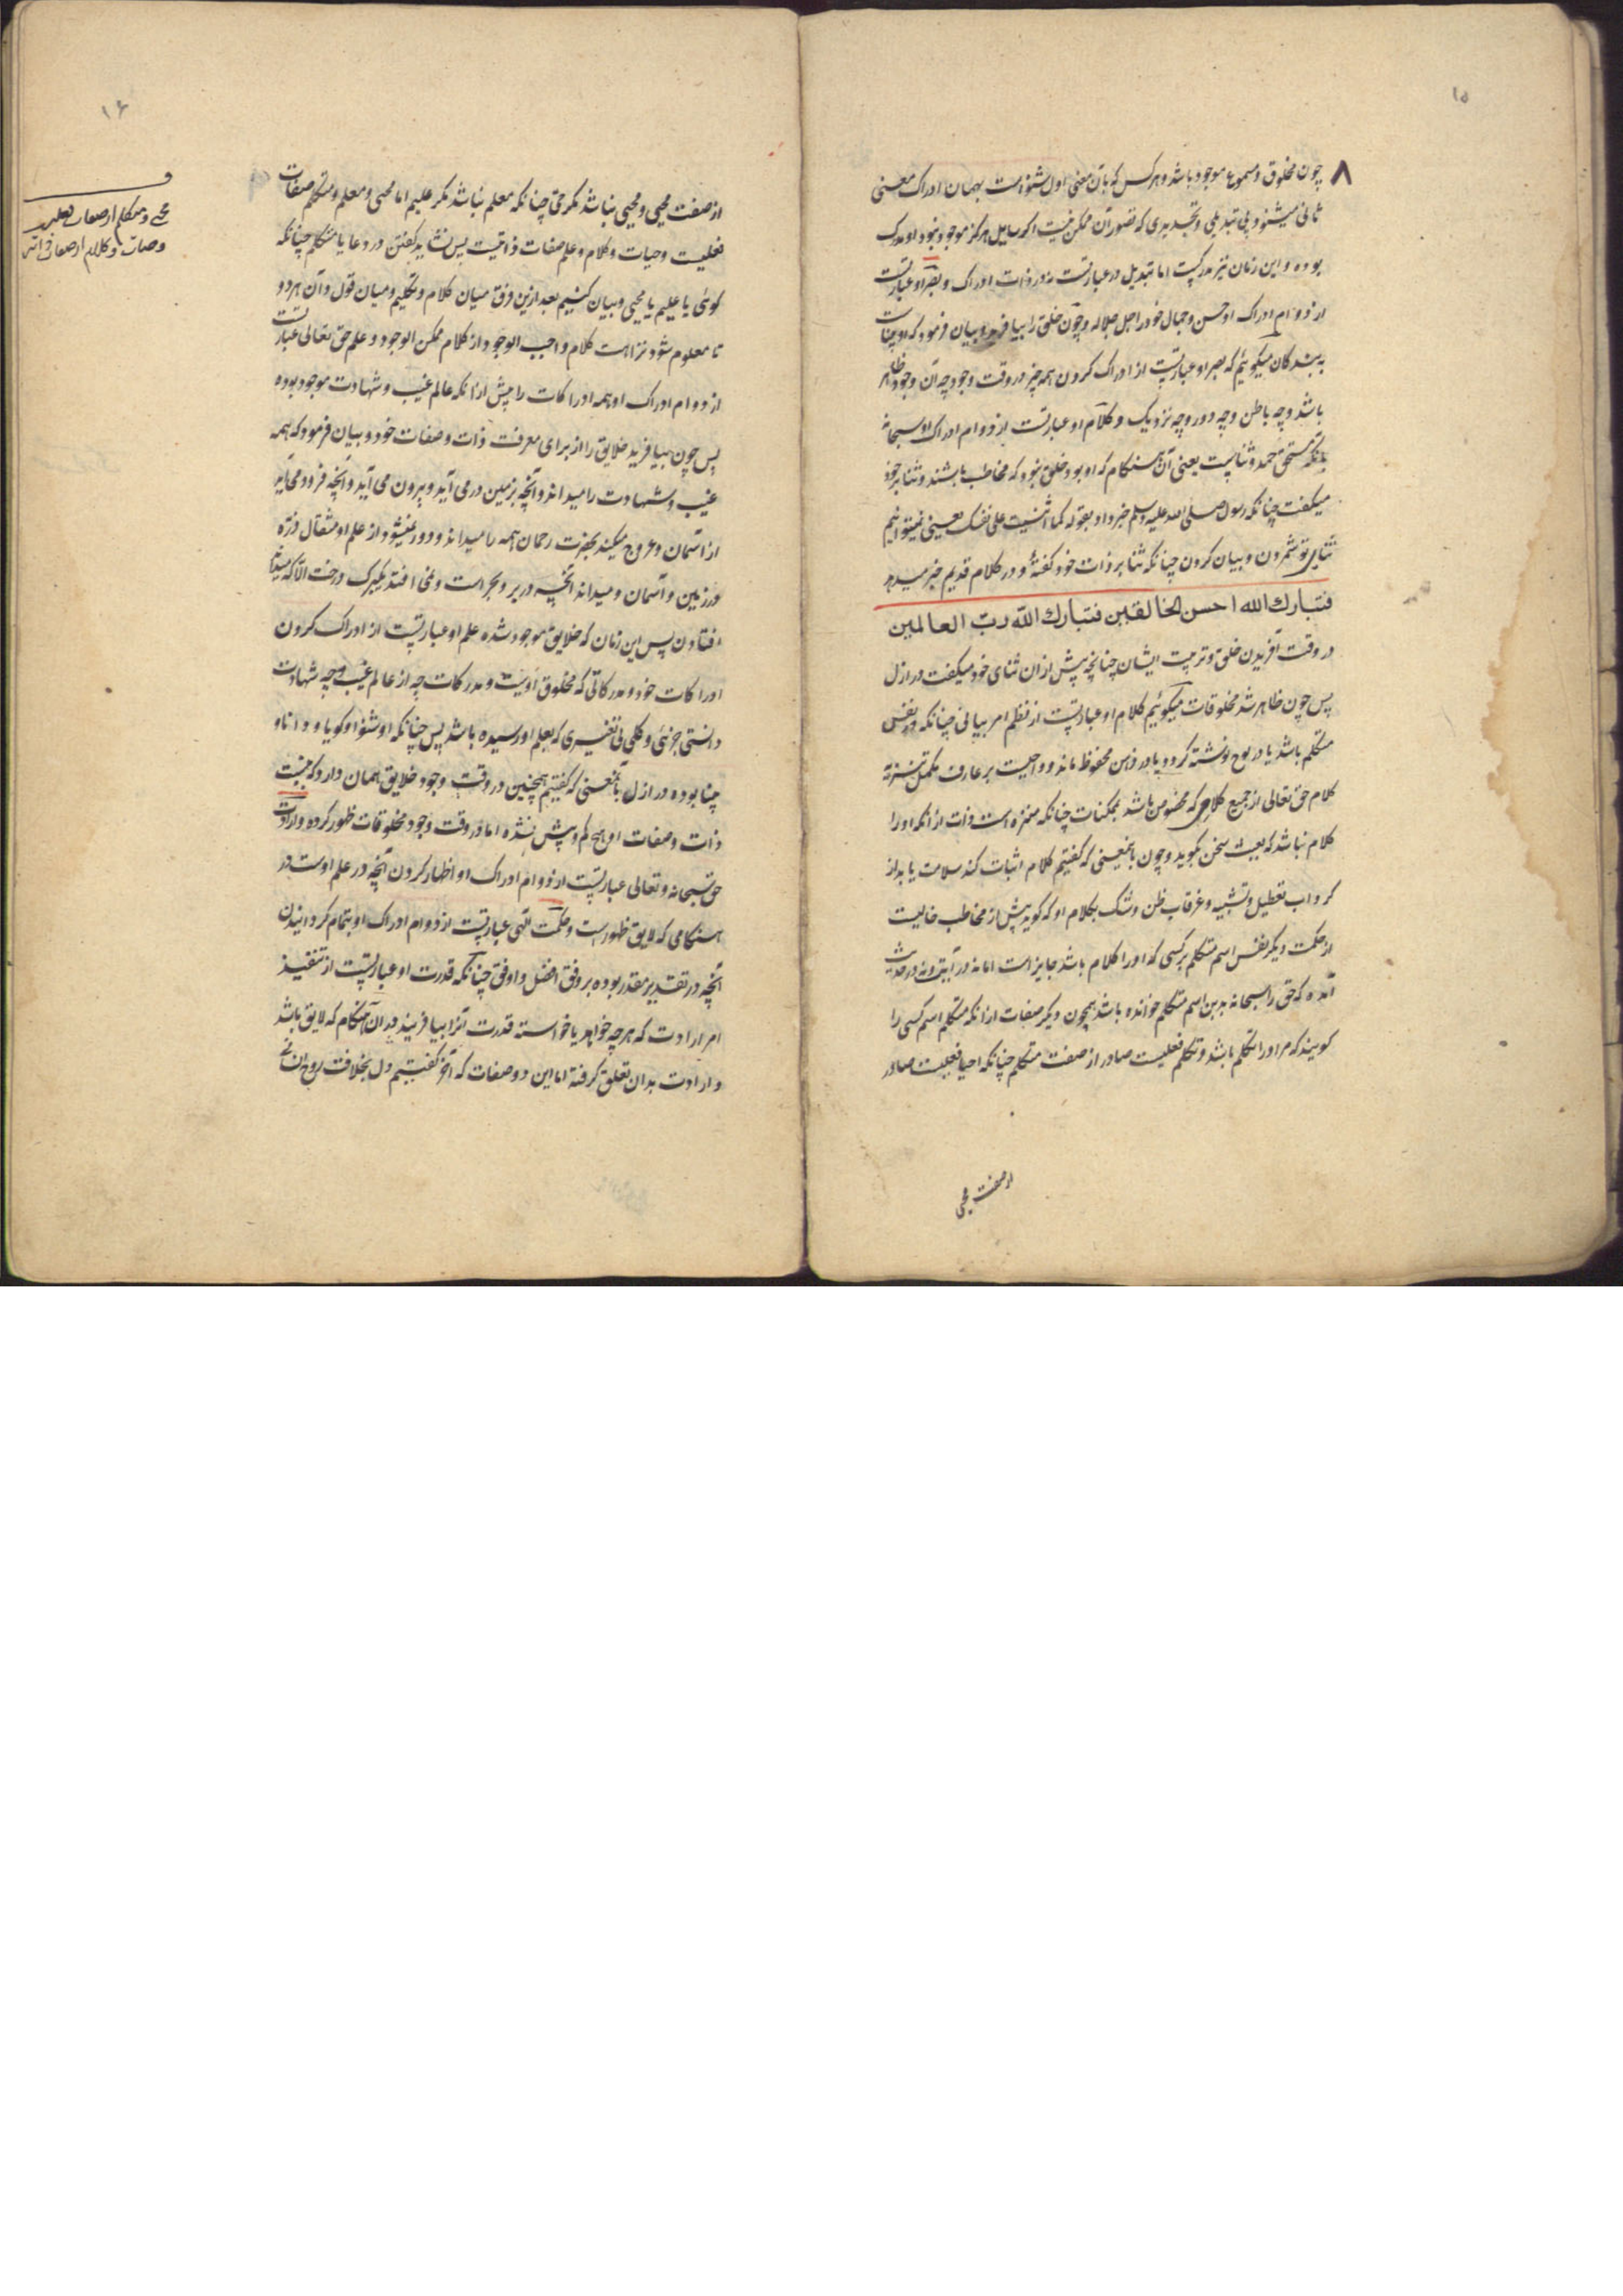 ۱۵
۸
چون مخلوق و مسموع موجود باشد و هر کس که بآن معنی اول شنواست بهمان ادراک معنی
ثانی میشنود بی تبدیلی و تجدیدی که تصور آن ممکن نیست اگر سایل هرگز موجود نبود او مدرک
بوده و این زمان نیز مدرکست اما تبدیل در عبارتست نه در ذات ادراک و بصر او عبارتست
از دوام ادراک او حسن و جمال خود را جل جلاله و چون خلق را بیافرید و بیان فرمود که او بیناست
به بندگان میگوئیم که بصر او عبارتست از ادراک کردن همه چیز در وقت وجود چه آن وجود ظاهر
باشد و چه باطن و چه دور و چه نزدیک و کلام او عبارتست از دوام ادراک او سبحانه
بانکه مستحق حمد و ثناست یعنی آن هنگام که او بود و خلق نبود که مخاطب باشند و ثنا بر خود
میگفت چنانکه رسول صلی الله علیه وسلم خبر داد بقوله کما اثنیت علی نفسک یعنی نمیتوانیم
ثنای تو شمردن و بیان کردن چنانکه ثنا بر ذات خود گفتهٔ و در کلام قدیم خبر میدهد
فتبارك الله احسن الخالقین فتبارك الله ربّ العالمین
در وقت آفریدن خلق و تربیت ایشان چنانچه پیش ازان ثنای خود میگفت در ازل
پس چون ظاهر شد مخلوقات میگوئیم کلام او عبارتست از نظم امر بیانی چنانکه در نفس
متکلم باشد یا در لوح نوشته گردد یا در ذهن محفوظ ماند و واجبست بر عارف مکمل تنزیه
کلام حق تعالی از جمیع کلامی که مخصوص باشد بممکنات چنانکه منزه است ذات از آنکه او را
کلام نباشد که بعبث سخن بگوید و چون بانمعنی که گفتیم کلام اثبات کند سلامت یابد از
گرداب تعطیل و تشبیه و غرقاب ظن و شک بکلام او که گوید پیش از مخاطب خالیست
از حکمت دیگر نفس اسم متکلم بر کسی که او را کلام باشد جایز است اما نه در آیتی و نه در حدیث
آمده که حق را سبحانه بدین اسم متکلم خوانده باشد همچون دیگر صفات از آنکه متکلم اسم کسی را
گویند که مر او را تکلم باشد و تکلم فعلیست صادر از صفت متکلم چنانکه احیا فعلیست صادر
از صفت محیی
۱۶
از صفت محیی و محیی نباشد مگر حی چنانکه معلم نباشد مگر علیم اما محیی و معلم و متکلم صفات
فعلیست و حیات و کلام و علم صفات ذاتیست پس نشاید گفتن در دعا یا متکلم چنانکه
گوئی یا علیم یا محیی و بیان کنیم بعد ازین فرق میان کلام و تکلیم و میان قول و آن هر دو
تا معلوم شود نزاهت کلام واجب الوجود از کلام ممکن الوجود و علم حق تعالی عبارتست
از دوام ادراک او همه ادراکات را پیش ازانکه عالم غیب و شهادت موجود بوده
پس چون بیافرید خلایق را از برای معرفت ذات و صفات خود و بیان فرمود که همه
غیب و شهادت را میداند و آنچه بزمین در می آید و بیرون می آید و آنچه فرود می آید
از آسمان و عروج میکند بحضرت رحمان همه را میداند و دور نمیشود از علم او مثقال ذره
در زمین و آسمان و میداند آنچه در بر و بحر است و نمی افتد یکبرک درخت الا که میداند
افتادن پس این زمان که خلایق موجود شده علم او عبارتست از ادراک کردن
ادراکات خود و مدرکاتی که مخلوق اویست و مدرکات چه از عالم غیب و چه شهادت
دانستی جزئی و کلی بی تغییری که بعلم او رسیده باشد پس چنانکه او شنوا و گویا و دانا و
بینا بوده در ازل بآنمعنی که گفتیم همچنین در وقت وجود خلایق همان دارد که نیست
ذات و صفات او هیچ کم و بیش نشده اما در وقت وجود مخلوقات ظهور کرده و ارادت
حق سبحانه و تعالی عبارتست از دوام ادراک او اظهار کردن آنچه در علم اوست در
هنگامی که لایق ظهور است و حکمت الهی عبارتست از دوام ادراک او بتمام گردانیدن
آنچه در تقدیر مقدر بوده بر وفق افضل و اوفق چنانکه قدرت او عبارتست از تنفیذ
امر ارادت که هر چه خواهد یا خواسته قدرت آنرا بیافریند در آن هنگام که لایق باشد
و ارادت بدان تعلق گرفته اما این دو صفات که آخر گفتیم دل بخلافت روح انسانی
محیی و متکلم از صفات فعلیند
و حیات و کلام از صفات ذاتی